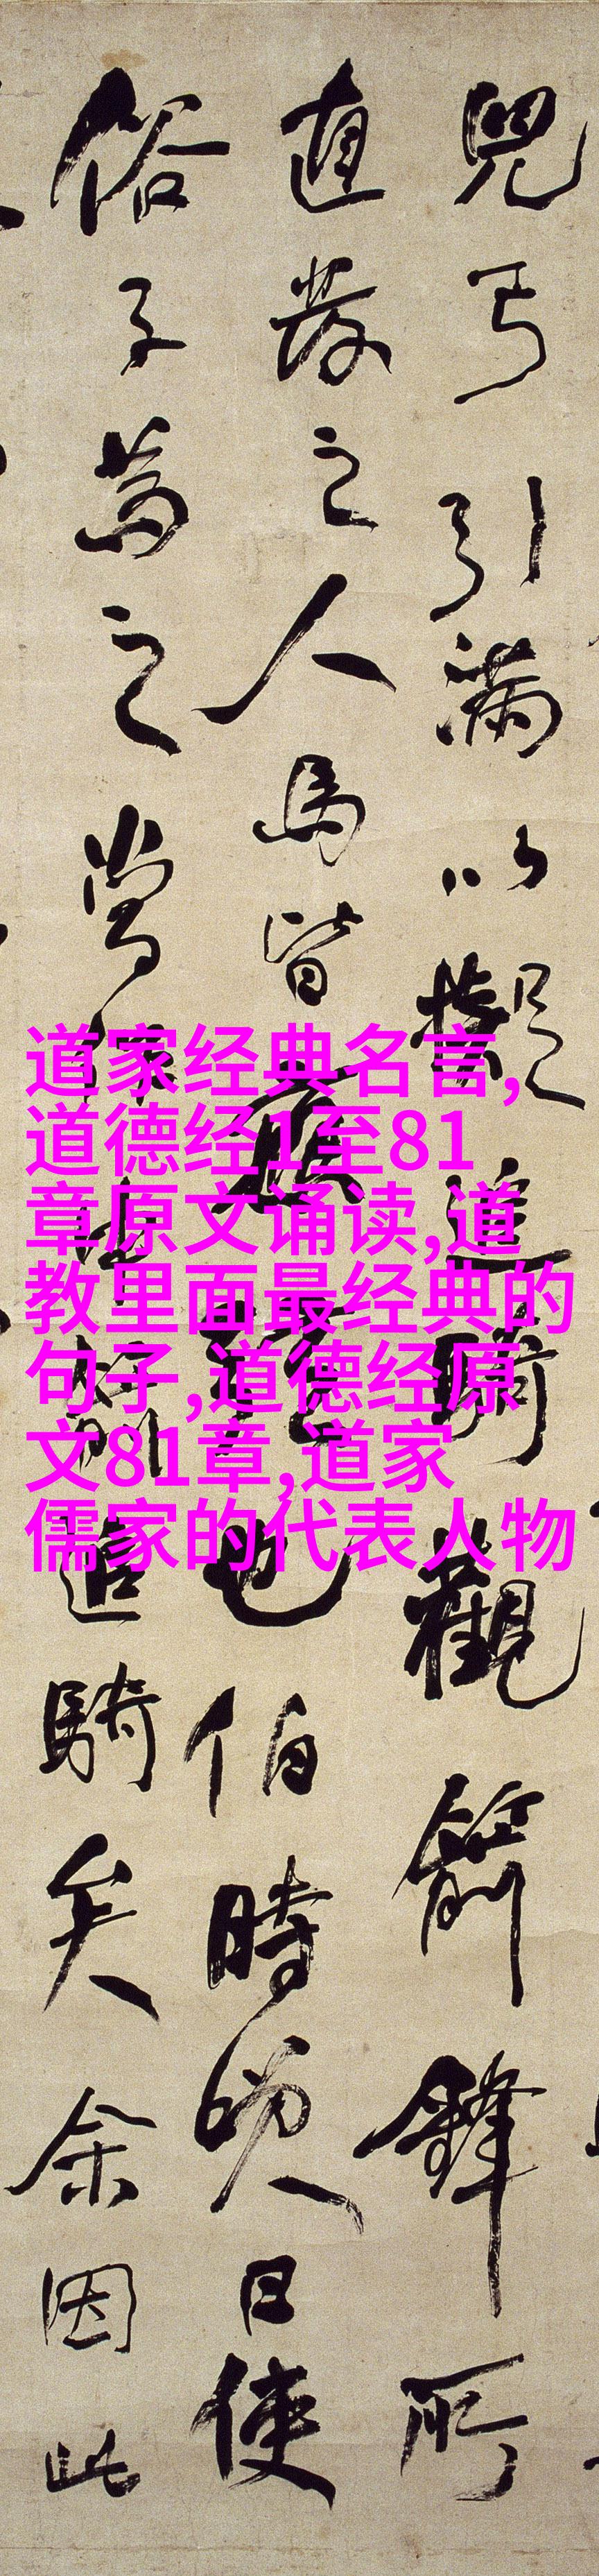 兒弓引滿以擬追騎觀箭鋒所
直發之人馬皆應弦也伯時笑曰使
俗子為之當作中箭追騎矣余因此
道家经典名言,
道德经1至81
章原文诵读,道
教里面最经典的
句子,道德经原
文81章,道家
儒家的代表人物